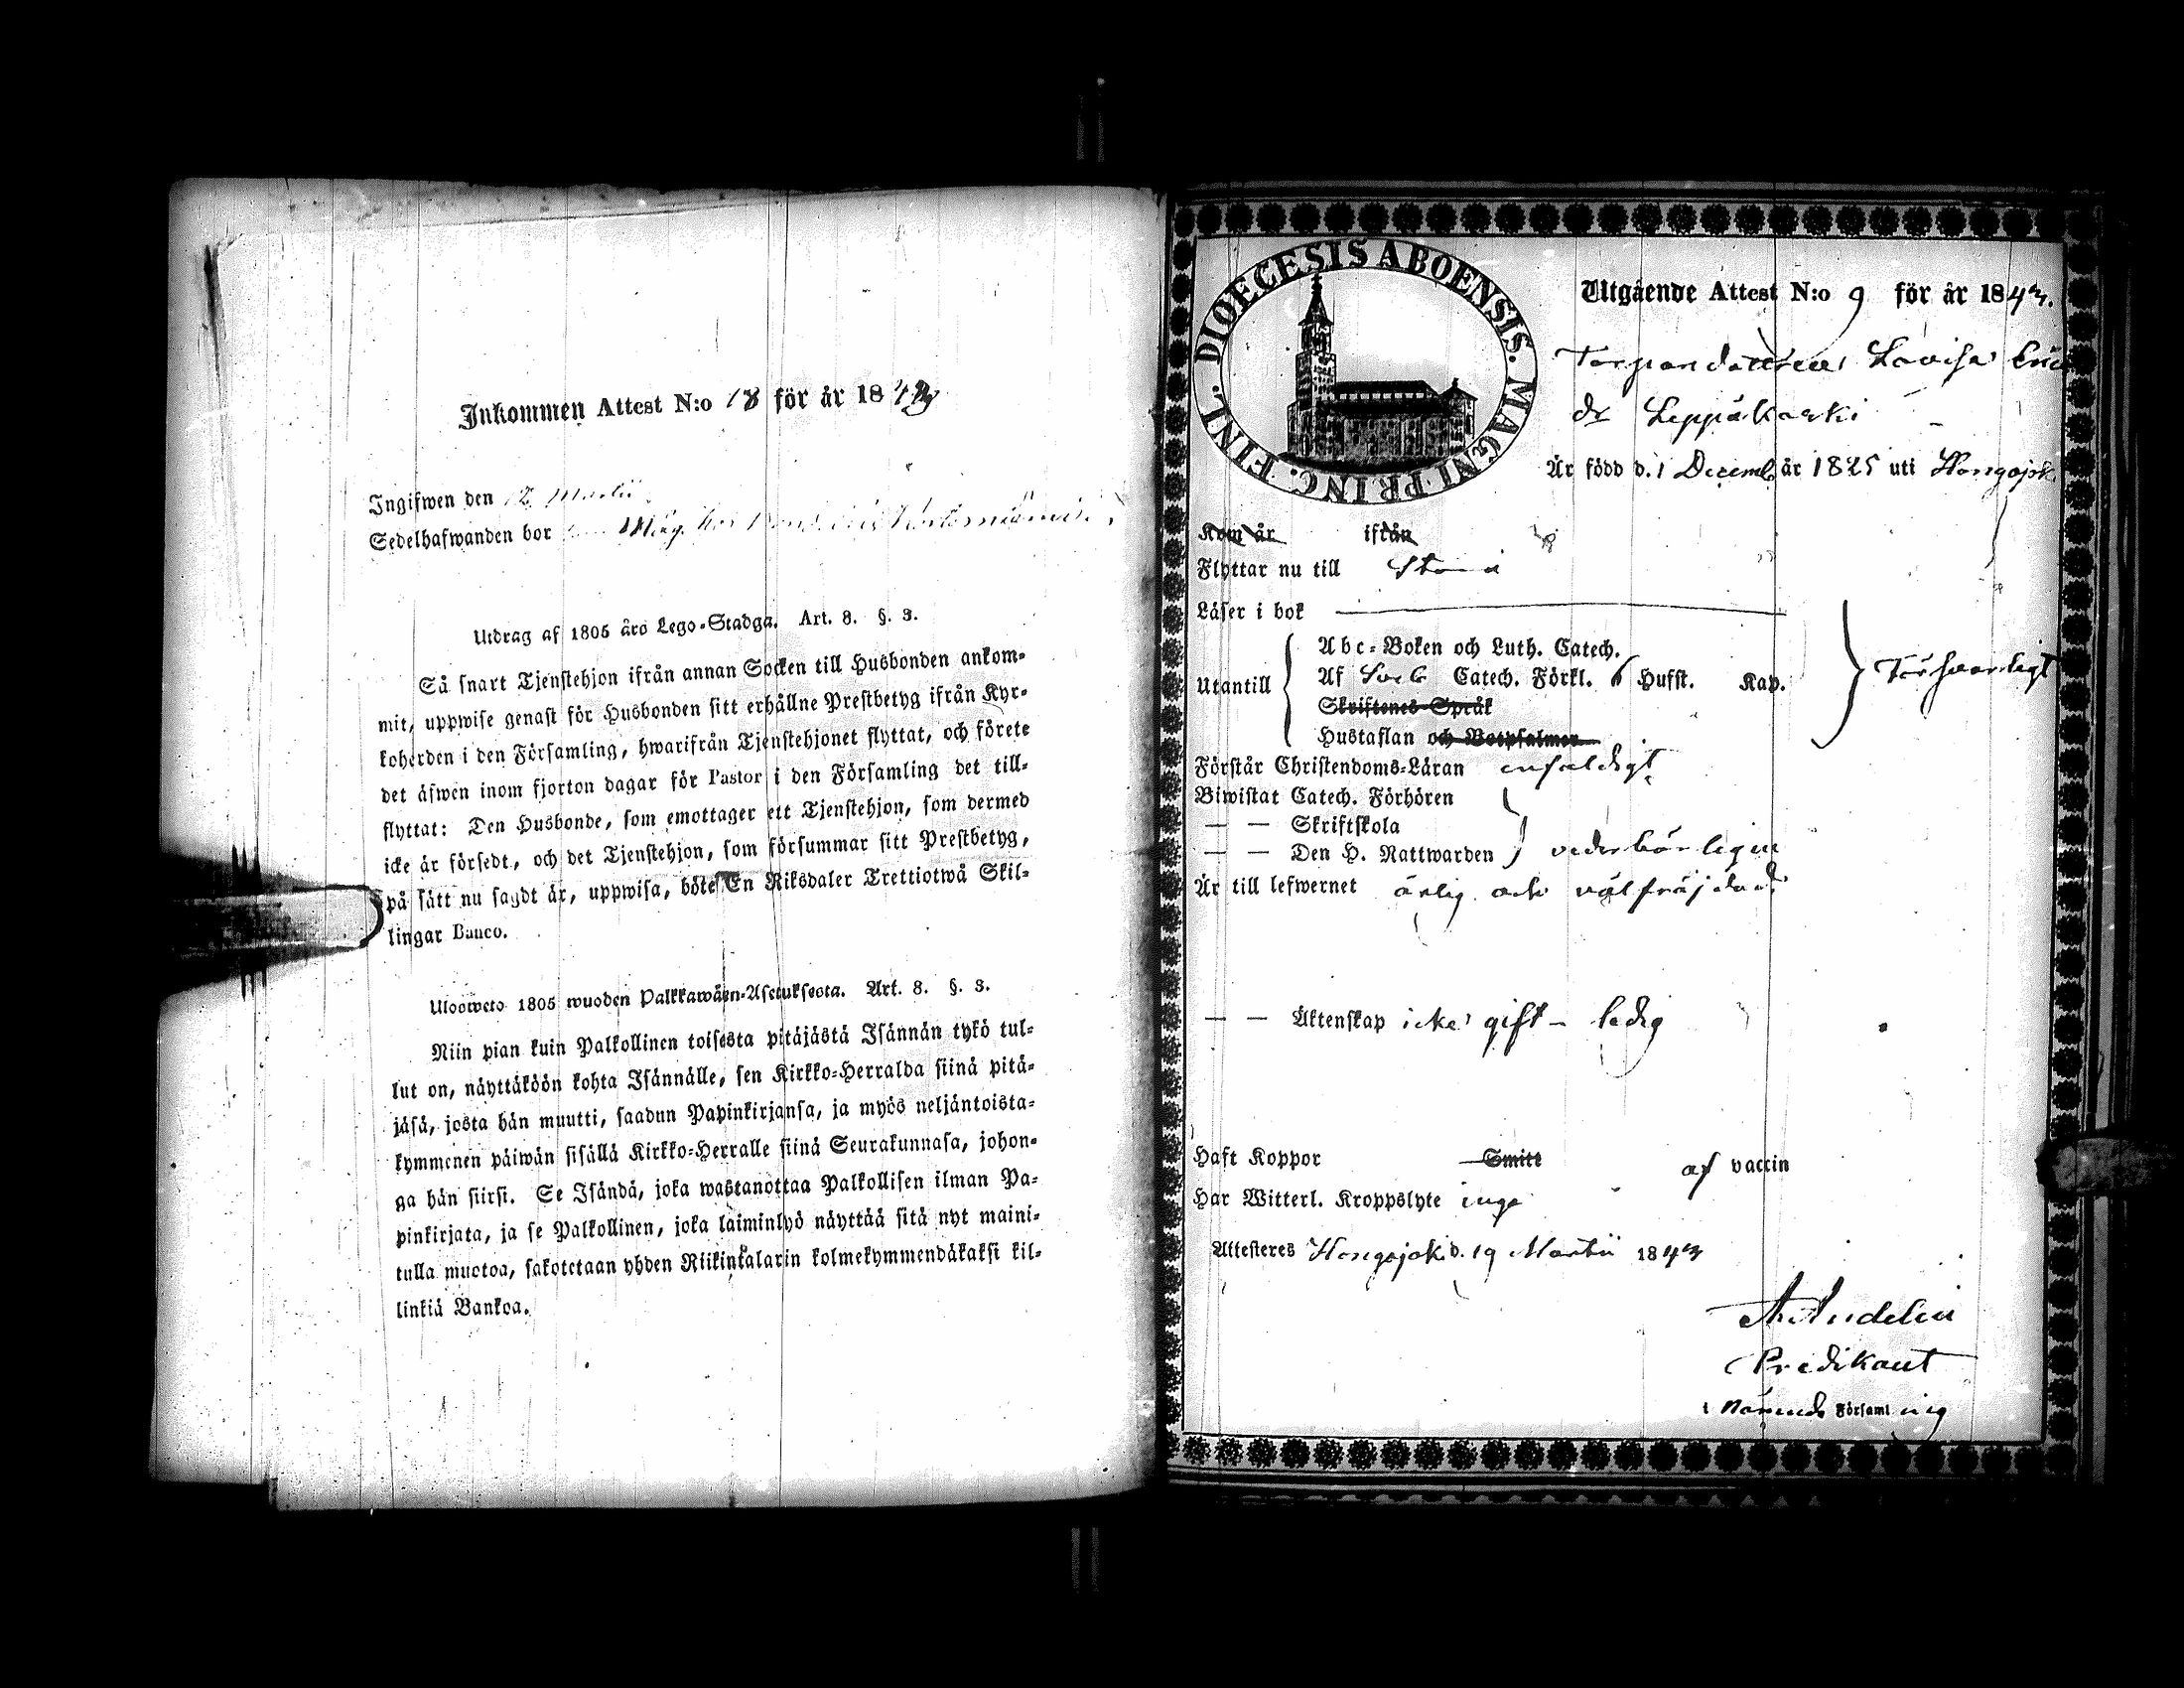 Inkommen Attest N:o 18 för år 1843
Ingifwen den Martii
Sedelhafwanden bor
Utdrag af 1805 års Lego-Stadga. Art. 8. §. 3.
Så snart Tjenstehjon ifrån annan Socken till Husbonden ankom-
mit, uppwise genast för Husbonden sitt erhållne Prestbetyg ifrån Kyr-
koherden i den Församling, hwarifrån Tjenstehjonet flyttat, och förete
det äfwen inom fjorton dagar för Pastor i den Församling det till-
flyttat: Den Husbonde, som emottager ett Tjenstehjon, som dermed
icke är försedt, och det Tjenstehjon, som försummar sitt Prestbetyg,
på sätt nu sagdt är, uppwisa, böte En Riksdaler Trettiotwå Skil-
lingar Banco.
Ulosweto 1805 wuoden Palkkawäen-Asetuksesta. Art. 8. §. 3.
Niin pian kuin Palkollinen toisesta pitäjästä Isännän tykö tul-
lut on, näyttäköön kohta Isännälle, sen Kirkko-Herralda siinä pitä-
jäsä, josta hän muutti, saadun Papinkirjansa, ja myös neljäntoista-
kymmenen päiwän sisällä Kirkko-Herralle siinä Seurakunnasa, johon-
ga hän siirsi. Se Isändä, joka wastanottaa Palkollisen ilman Pa-
pinkirjata, ja se Palkollinen, joka laiminlyö näyttää sitä nyt maini-
tulla muotoa, sakotetaan yhden Riikintalarin kolmekymmendäkaksi kil-
linkiä Bankoa.
DIOECESIS ABOENSIS. MAGNI PRINC. FINL.
Utgående Attest N:o 9 för år 1843.
Torpandottren Lovisa Eric
dr Leppäkoski
Är född d. 1 Decemb år 1825 uti Hongojok
Kom år ifrån
Flyttar nu till
Läser i bok
Abc-Boken och Luth. Catech.
Utantill Af Sveb Catech. Förkl. 6 Hufst. Kap. Försvarligt
Skriftenes Språk
Hustaflan och Botpsalmer
Förstår Christendoms-Läran enfaldigt
Biwistat Catech. Förhören
— — Skriftskola
— — Den H. Nattwarden vederbörligen
Är till lefwernet ärlig och välfräjdad
— — Äktenskap icke gift - ledig
Haft Koppor Smitt af vaccin
Har Witterl. Kroppslyte inga
Attesteres Hongojok d. 19 Martii 1843
A. Andelin
Predikant
i nämnde Församl ing